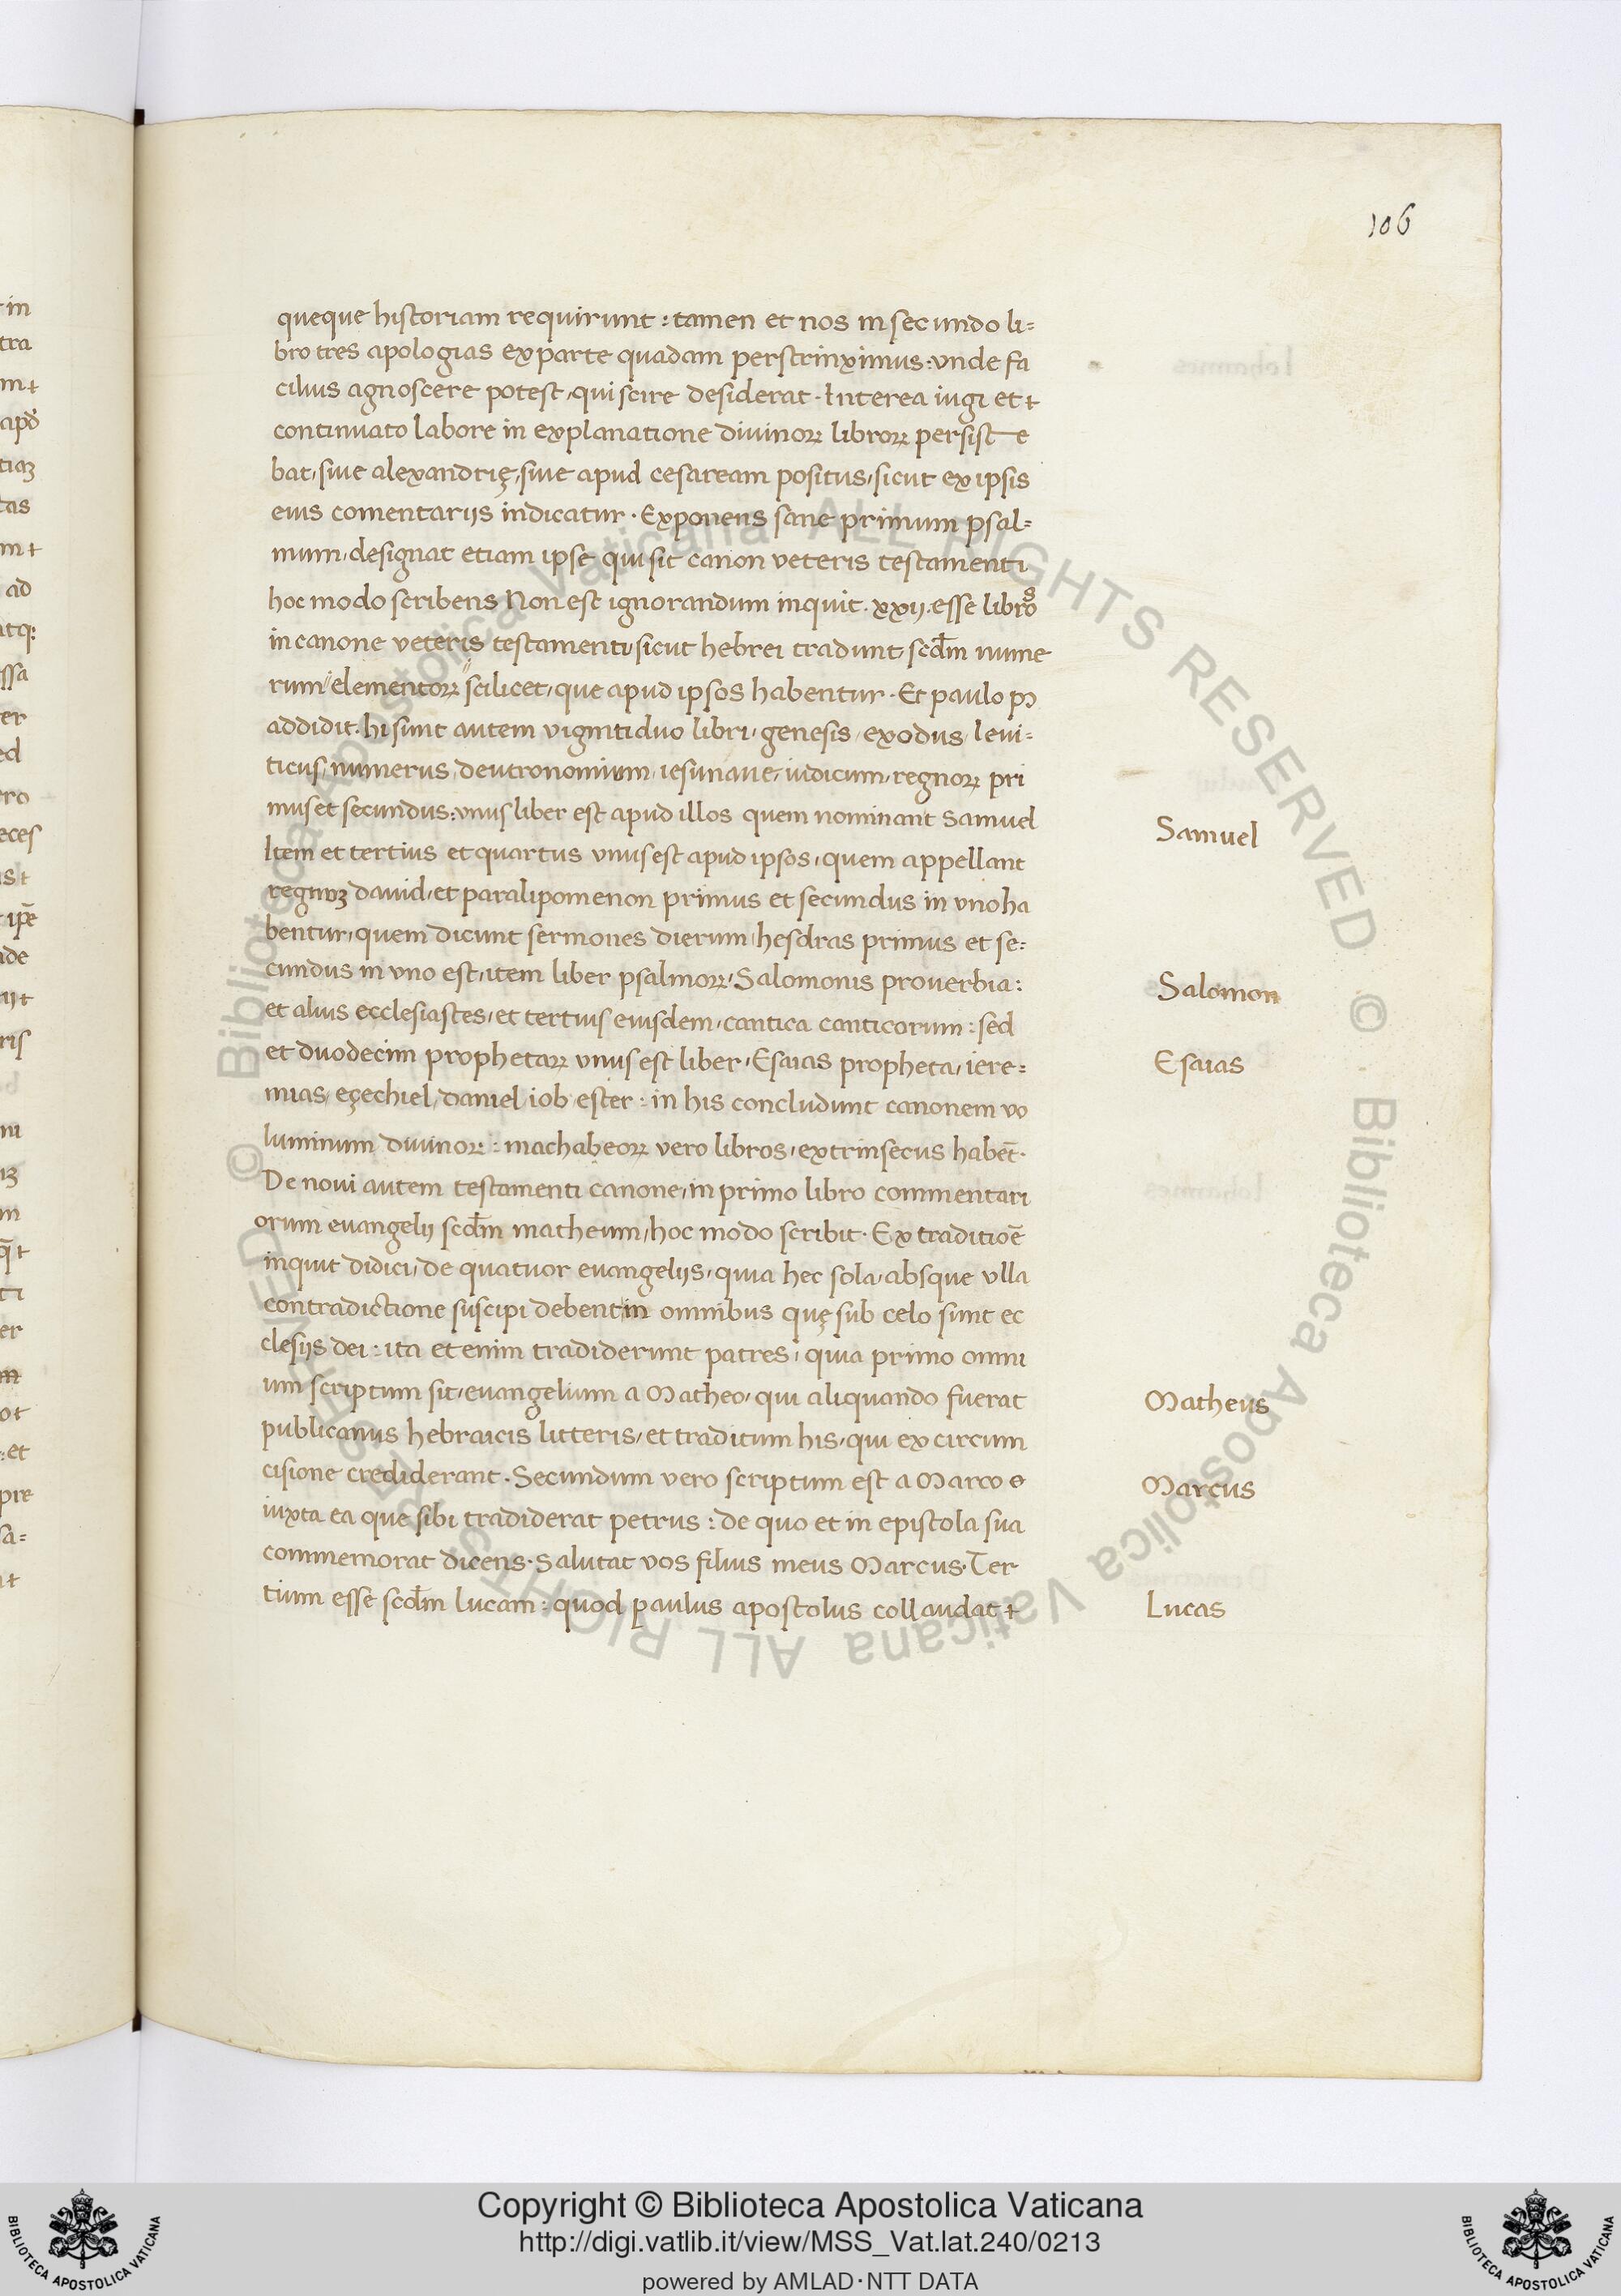 106
queque historiam requirunt : tamen et nos in secundo li=
bro tres apologias ex parte quadam perstrinximus : vnde fa
cilius agnoscere potest, qui scire desiderat · Interea iugi et
continuato labore in explanatione diuinoꝝ libroꝝ persiste
bat, siue alexandrię, siue apud cesaream positus, sicut ex ipsis
eius comentarijs indicatur · Exponens sane primum psal=
mum, designat etiam ipse qui sit canon veteris testamenti
hoc modo scribens Non est ignorandum inquit · xxij · esse libros
in canone veteris testamenti, sicut hebrei tradunt, scđm nume
rum elementoꝝ scilicet, que apud ipsos habentur · Et paulo pꝰ
addidit · hi sunt autem viginti duo libri, genesis, exodus, leui=
ticus, numerus, deutronomium, iesu naue, iudicum, regnoꝝ pri
mus et secundus : vnus liber est apud illos quem nominant Samuel
Samuel
Item et tertius et quartus vnus est apud ipsos, quem appellant
regnuꝫ dauid, et paralipomenon primus et secundus in vno ha
bentur, quem dicunt sermones dierum, hesdras primus et se=
cundus in vno est, item liber psalmoꝝ, Salomonis prouerbia :
Salomon
et alius ecclesiastes, et tertius eiusdem, cantica canticorum : sed
et duodecim prophetaꝝ vnus est liber, Esaias propheta, iere=
Esaias
mias, eçechiel, daniel, iob, ester : in his concludunt canonem vo
luminum diuinoꝝ : machabeoꝝ vero libros, extrinsecus habēt ·
De noui autem testamenti canone, in primo libro commentari
orum euangelij scđm matheum, hoc modo scribit · Ex traditiōe
inquit didici, de quatuor euangelijs, quia hec sola, absque vlla
contradictione suscipi debent in omnibus quę sub celo sunt ec
clesijs dei : ita et enim tradiderunt patres, quia primo omni
um scriptum sit, euangelium a Matheo, qui aliquando fuerat
Matheus
publicanus hebraicis litteris, et traditum his, qui ex circum
cisione crediderant · Secundum vero scriptum est a Marco
Marcus
iuxta ea que sibi tradiderat petrus : de quo et in epistola sua
commemorat dicens · Salutat vos filius meus Marcus · Ter
tium esse scđm lucam : quod paulus apostolus collaudat
Lucas
© Biblioteca Apostolica Vaticana ALL RIGHTS RESERVED © Biblioteca Apostolica Vaticana ALL RIGHTS RESERVED
Copyright © Biblioteca Apostolica Vaticana
http://digi.vatlib.it/view/MSS_Vat.lat.240/0213
powered by AMLAD·NTT DATA
BIBLIOTECA APOSTOLICA VATICANA
BIBLIOTECA APOSTOLICA VATICANA